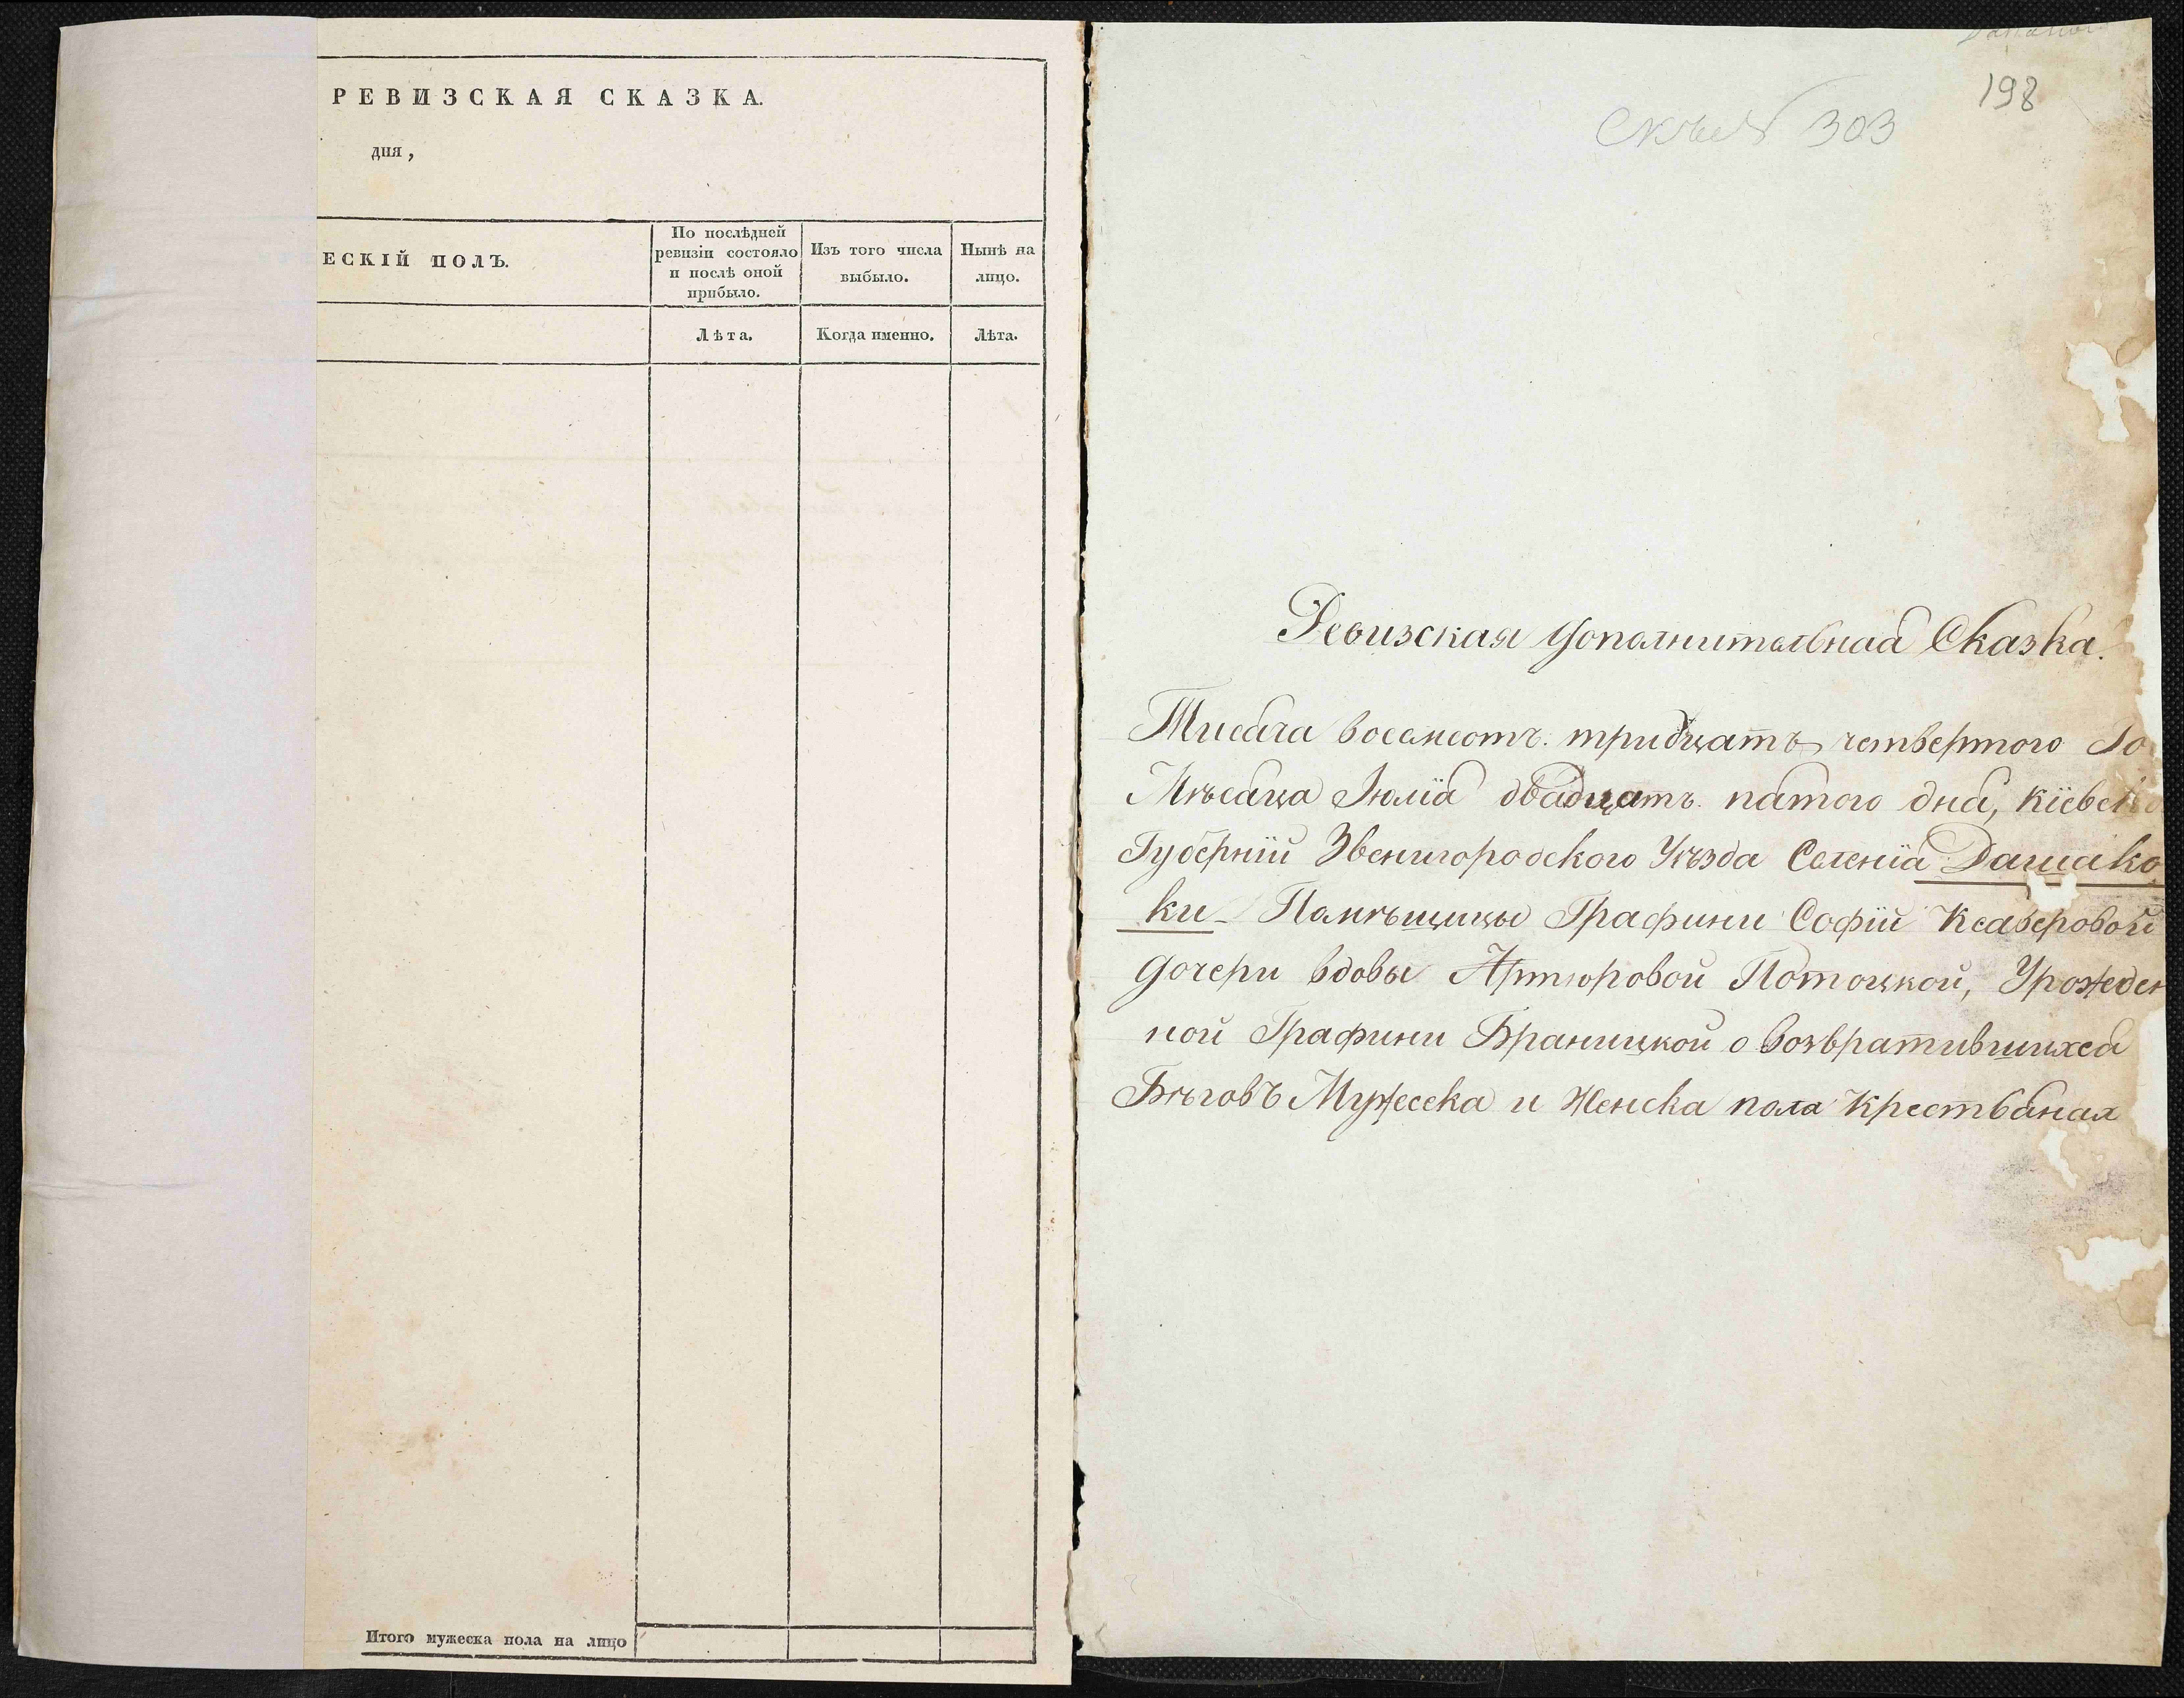 РЕВИЗСКАЯ СКАЗКА.
дня,
ЕСКІЙ ПОЛЪ.
По послѣдней
ревизіи состояло
и послѣ оной
прибыло.
Изъ того числа
выбыло.
Нынѣ на
лицо.
Лѣта.
Когда именно.
Лѣта.
Итого мужеска пола на лицо
198
303
Ревизская Дополнительная Сказка.
Тисяча восемсотъ тридцать четвертого Го
Мѣсяца Июлія двадцатъ пятого дня, Кіевско
Губерніи Звенигородского Уѣзда Селенія Дашако
ки Помѣщицы Графини Софіи Ксаверовой
Дочери вдовы Артюровой Потоцкой, Урожден
ной Графини Браницкой о возвратившихся
Бѣговъ Мужеска и Женска пола Крестьянах